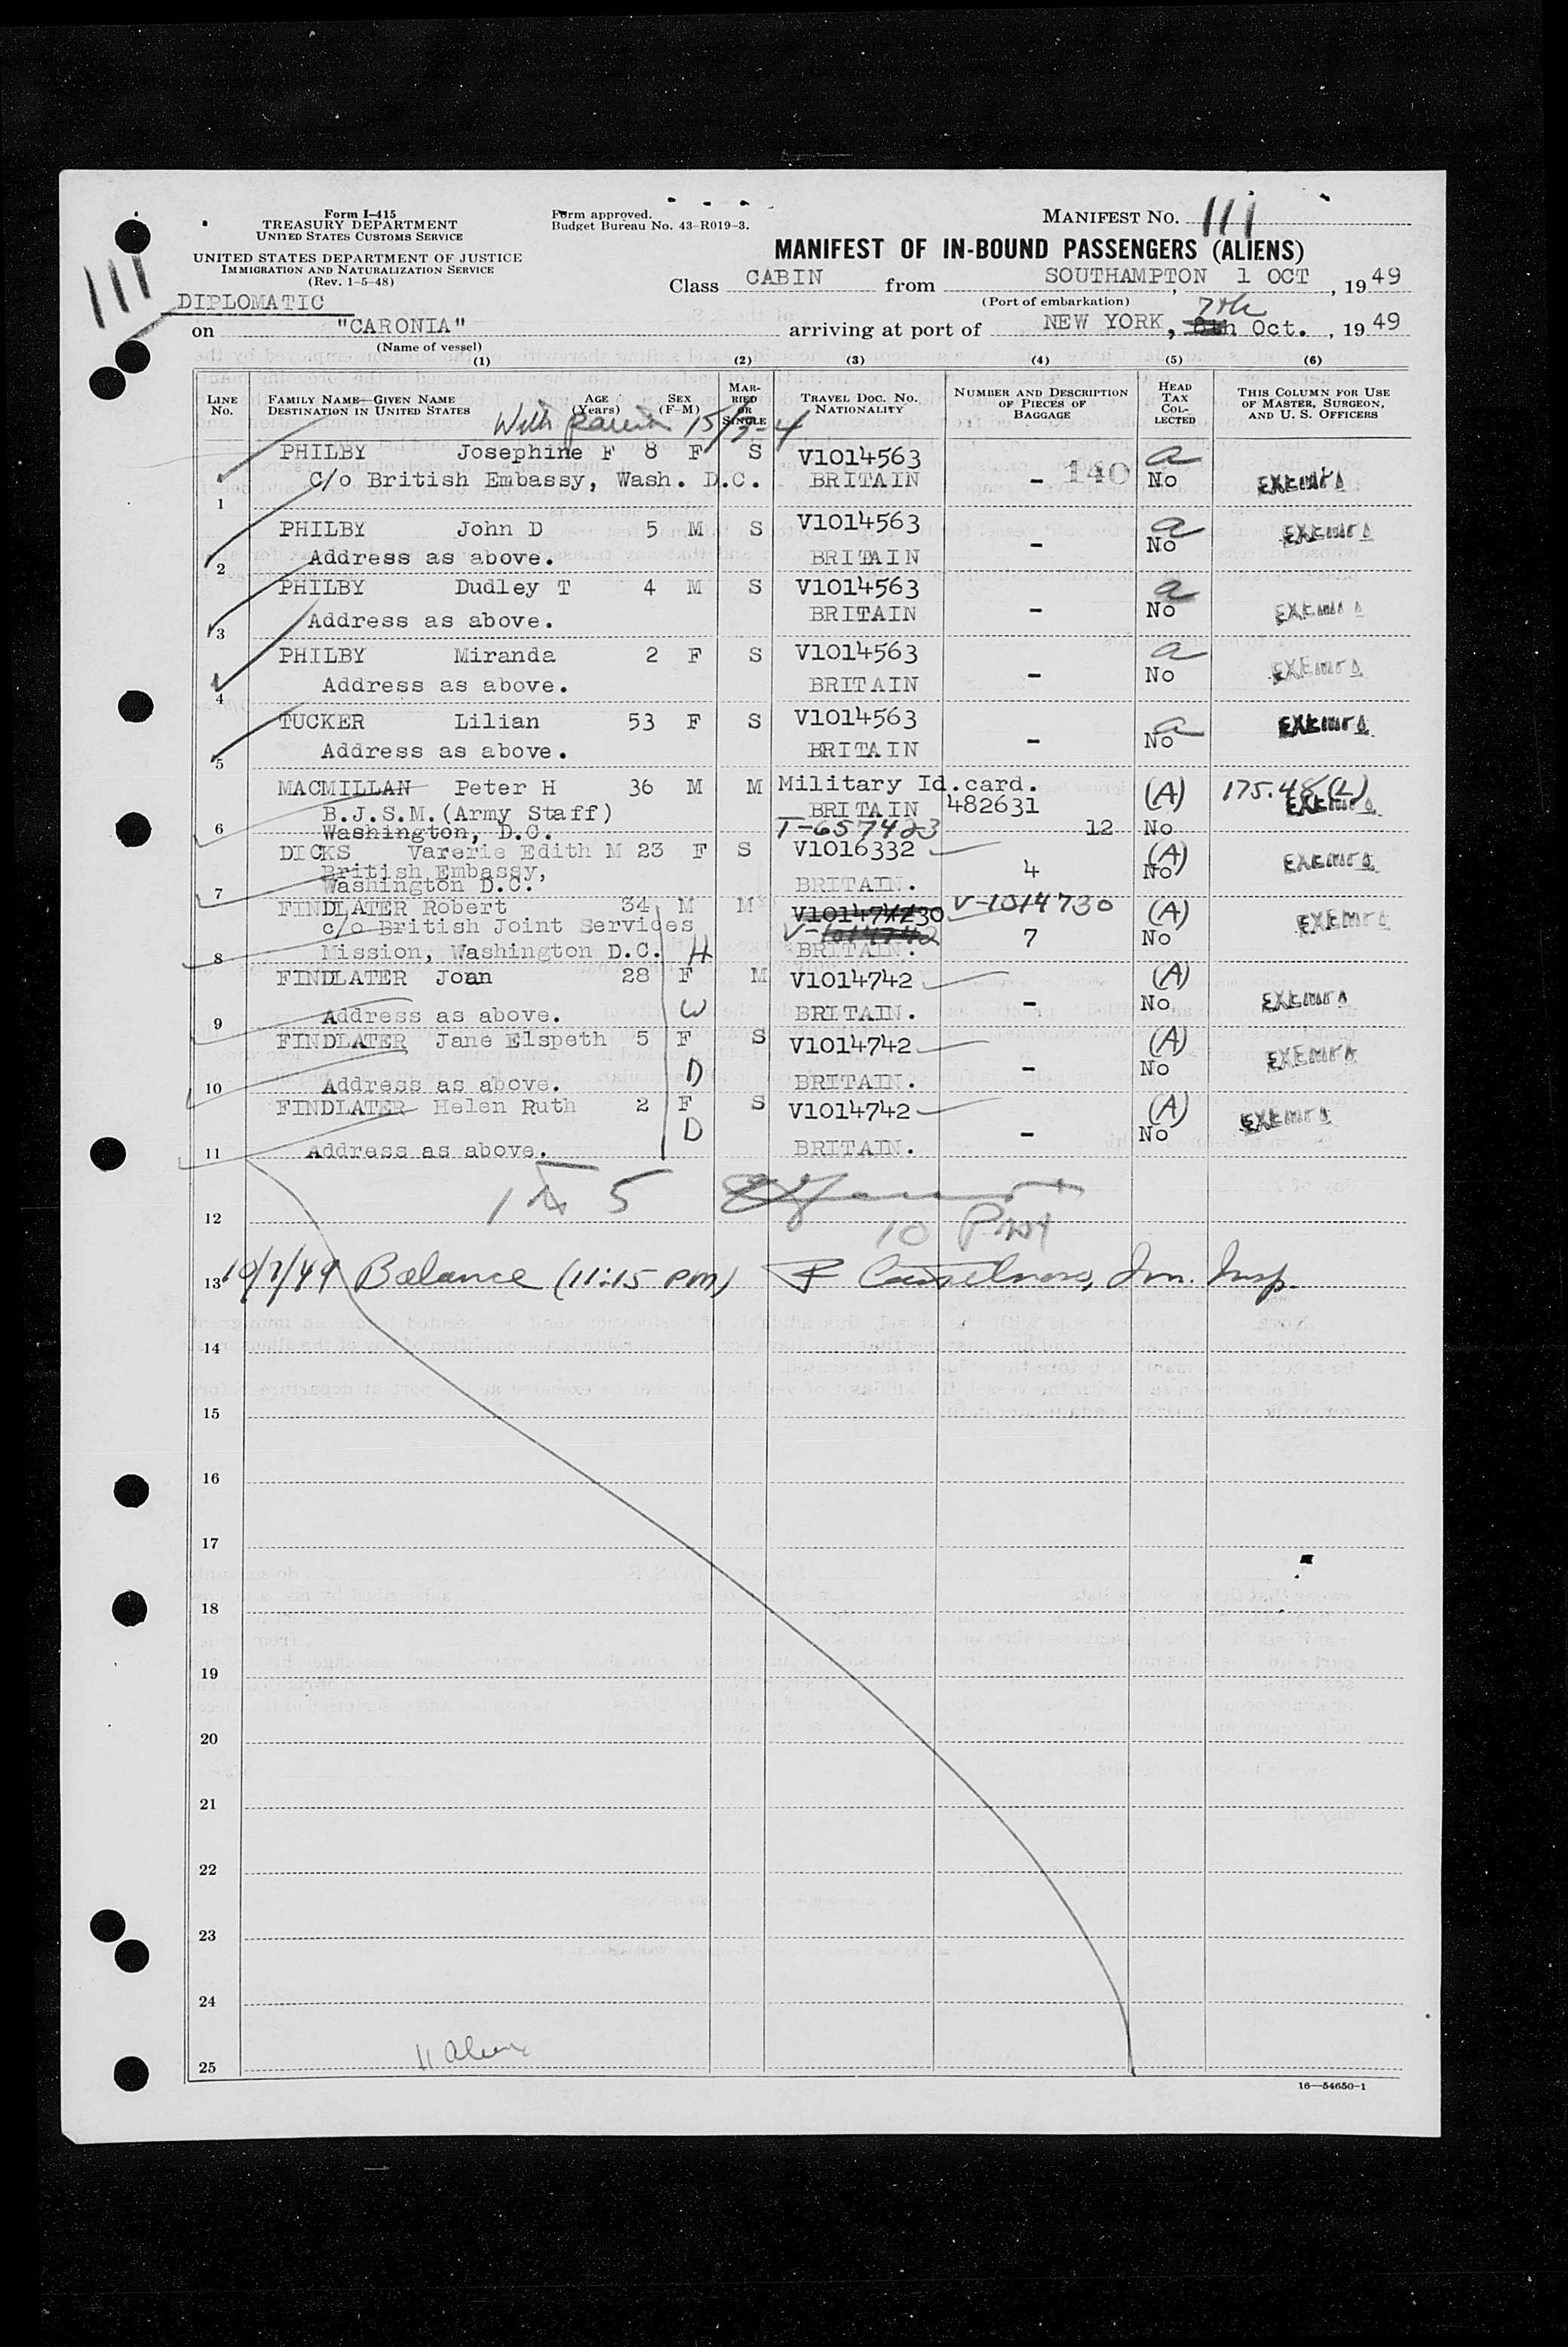 Form I-415
TREASURY DEPARTMENT
UNITED STATES CUSTOMS SERVICE
UNITED STATES DEPARTMENT OF JUSTICE
IMMIGRATION AND NATURALIZATION SERVICE
(Rev. 1-5-48)
Form approved.
Budget Bureau No. 43-R019-3.
MANIFEST NO. 111
111
MANIFEST OF IN-BOUND PASSENGERS (ALIENS)
Class CABIN from SOUTHAMPTON 1 OCT, 1949
(Port of embarkation)
DIPLOMATIC
7th
on "CARONIA" arriving at port of NEW YORK, 8th Oct., 1949
(Name of vessel)
(1) (2) (3) (4) (5) (6)
LINE No.
FAMILY NAME—GIVEN NAME
DESTINATION IN UNITED STATES
AGE (Years)
SEX (F-M)
MARRIED OR SINGLE
TRAVEL DOC. NO.
NATIONALITY
NUMBER AND DESCRIPTION OF PIECES OF BAGGAGE
HEAD TAX COLLECTED
THIS COLUMN FOR USE OF MASTER, SURGEON, AND U. S. OFFICERS
With 15/3-4
PHILBY Josephine F 8 F S V1014563 a
1 C/o British Embassy, Wash. D.C. BRITAIN - 140 No
PHILBY John D 5 M S V1014563 a
2 Address as above. BRITAIN - No
PHILBY Dudley T 4 M S V1014563 a
3 Address as above. BRITAIN - No
PHILBY Miranda 2 F S V1014563 a
4 Address as above. BRITAIN - No
TUCKER Lilian 53 F S V1014563 a
5 Address as above. BRITAIN - No
MACMILLAN Peter H 36 M M Military Id.card. (A) 175.48(L)
B.J.S.M.(Army Staff) BRITAIN 482631
6 Washington, D.C. T-657423 12 No
DICKS Varerie Edith M 23 F S V1016332 (A)
British Embassy, 4 No
7 Washington D.C. BRITAIN.
FINDLATER Robert 34 M M V-1014730 (A)
c/o British Joint Services V-1014742 7 No
8 Mission, Washington D.C. H BRITAIN.
FINDLATER Joan 28 F M V1014742 (A)
9 Address as above. W BRITAIN. - No
FINDLATER Jane Elspeth 5 F S V1014742 (A)
10 Address as above. D BRITAIN. - No
FINDLATER Helen Ruth 2 F S V1014742 (A)
11 Address as above. D BRITAIN. - No
1 to 5
12 10
13 10/7/49 Balance (11:15 PM) Imm. Insp.
14
15
16
17
18
19
20
21
22
23
24
25 11 Aliens
16—54650-1